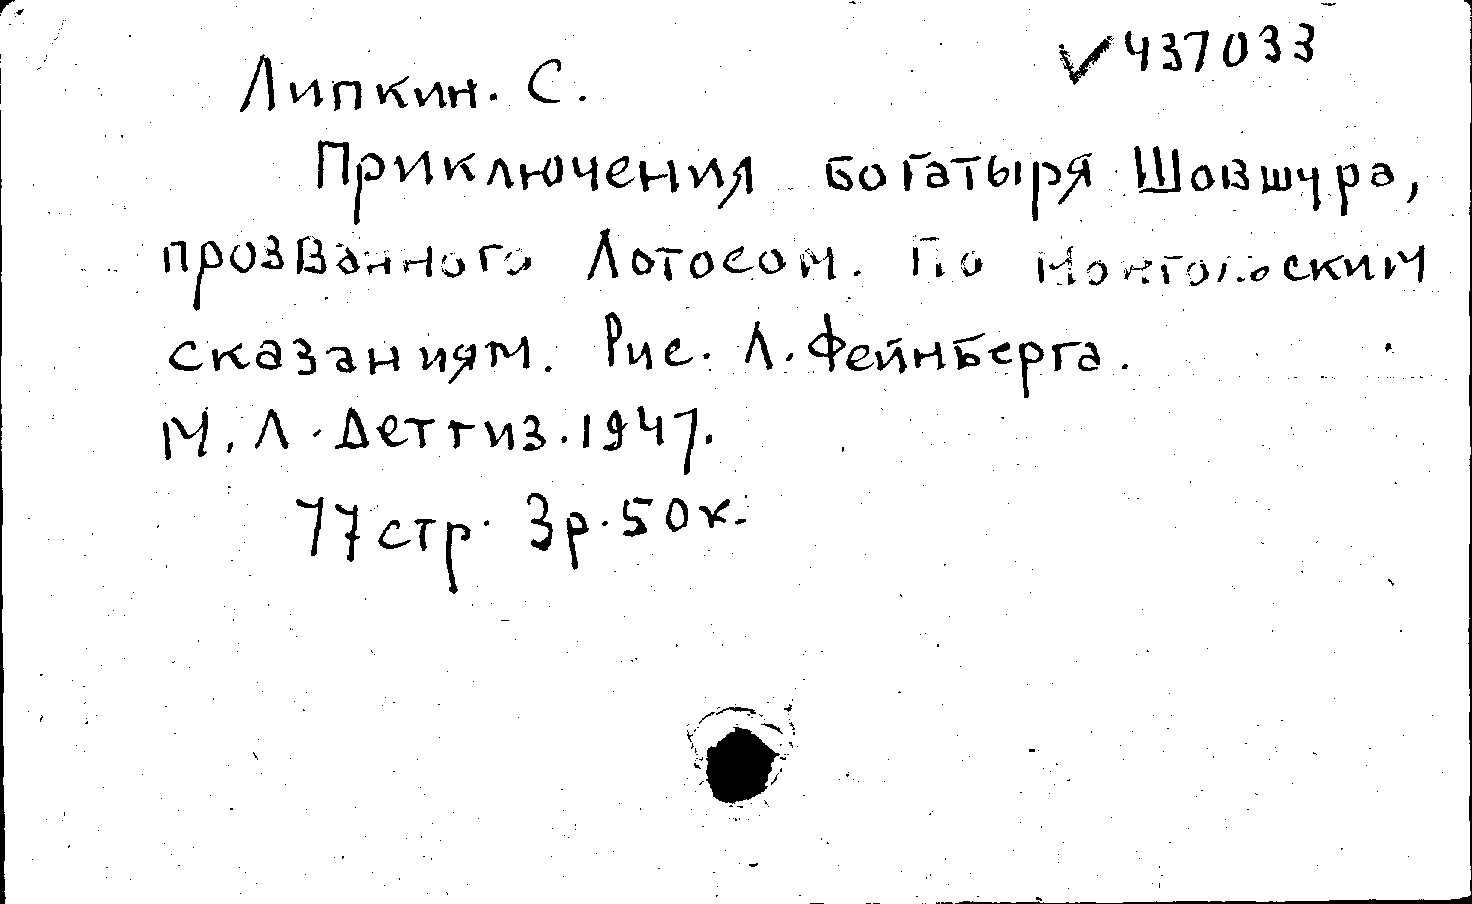 ✓437033
Липкин. С.
Приключения богатыря Шовшура,
прозванного Лотосом. По монгольским
сказаниям. Рис. Л. Фейнберга.
М. Л. Детгиз. 1947.
77 стр. 3р. 50к.